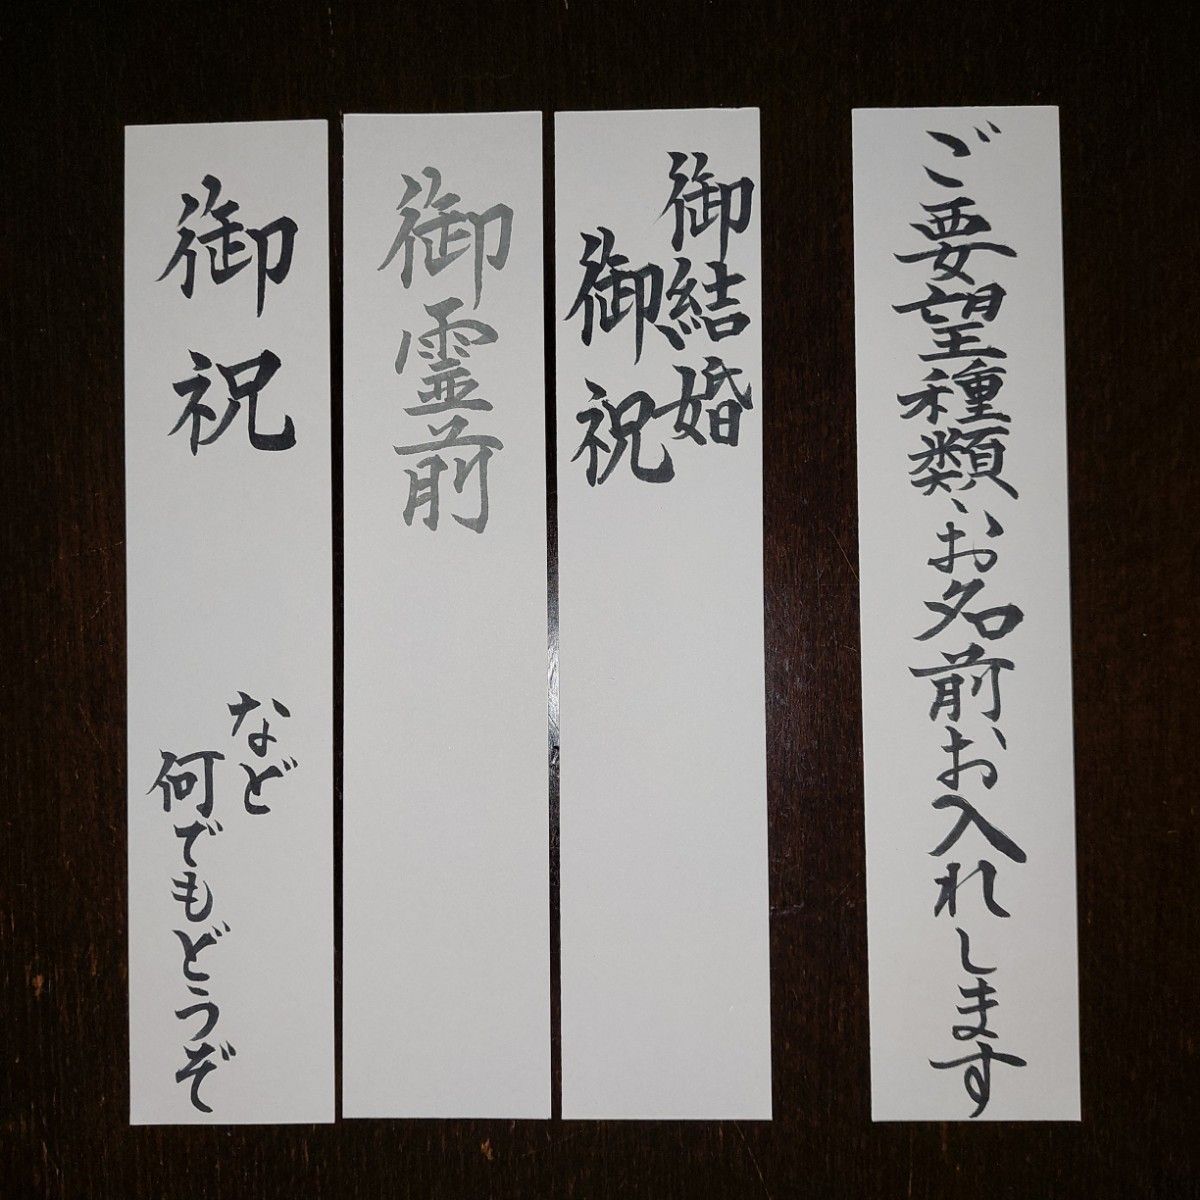 ご要望種類、お名前お入れします
御結婚
御祝
御霊前
御祝
など
何でもどうぞ